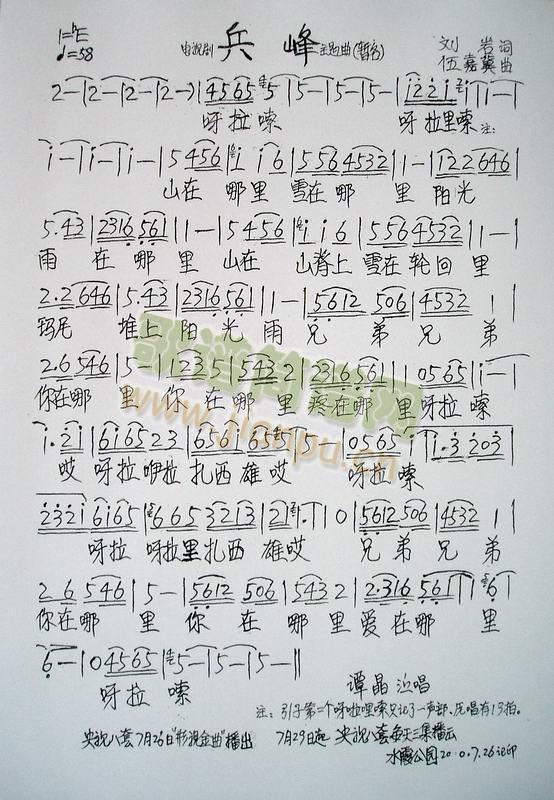 1=bE
♩=58
电视剧 兵 峰 主题曲(暂名)
刘 岩 词
伍嘉冀 曲
2-|2-|2-|2-|4565 5|5-|5-|5-|i22i i|i-|
呀拉嗦 呀拉里嗦 注:
i-|i-|i-|5 456|i i6|556 4532|1-|122646|
山在 哪里 雪在哪 里 阳光
5.43|2316 561|1-|5 456|i i6|556 4532|1-|
雨 在哪里 山在 山脊上 雪在轮回 里
2.2646|5.43|2316 561|1-|5612 506|4532 1|
玛尼 堆上 阳光雨 兄 弟兄 弟
2.6 546|5-|1235|5432|2316 561|1 0565|i-|
你在哪 里 你 在哪里 疼在哪 里呀拉 嗦
i.2i|6i6523|6561|5.|0565 i|i.3 203|
哎 呀拉咿拉 扎西 雄哎 呀拉 嗦
232i|6i65|665 3213|21.|0|5612 506|4532 1|
呀拉 呀拉里扎西 雄哎 兄 弟兄 弟
2 6 546|5-|5612 506|5432|2.316 561|6|
你在哪 里 你 在 哪里爱在哪 里
6-|04565|5-|5-|5-‖
呀拉 嗦
谭晶 演唱
注: 引子第二个呀拉里嗦只记了一声部、原唱有13拍。
央视八套7月26日"影视金曲"播出 7月29日起 央视八套每天三集播出
水霞公园2010.7.26记印
歌谱简谱网
www.jianpu.cn